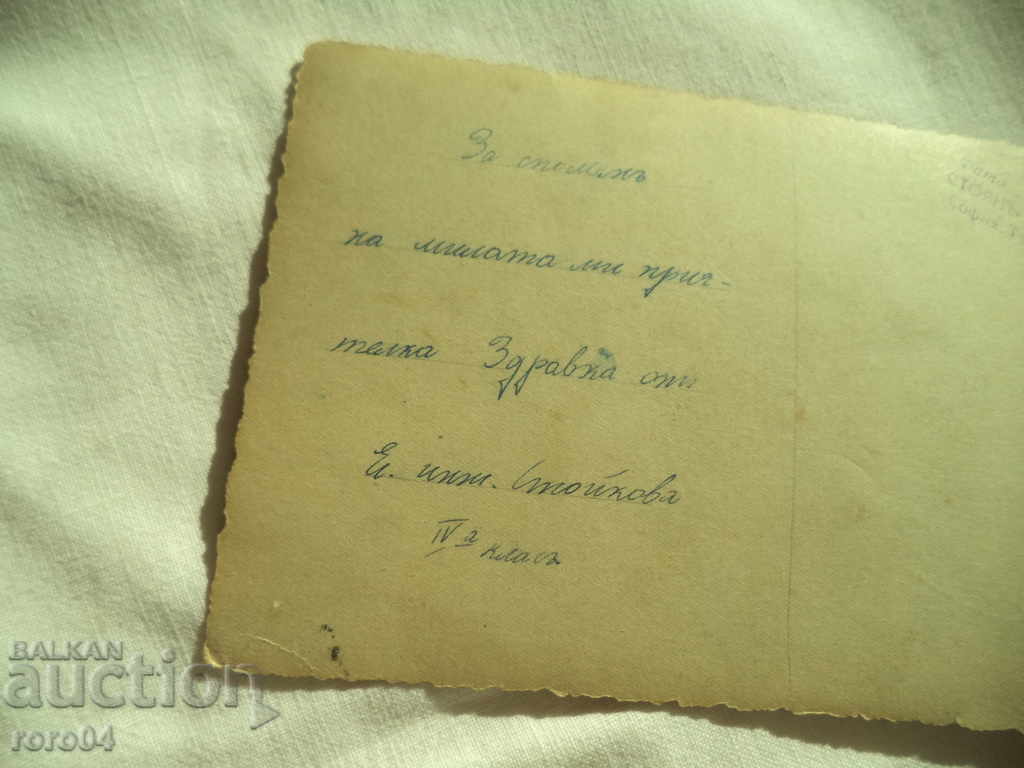 За споменъ
на милата ми прия-
телка Здравка отъ
Е. инж. Стойкова
IVа класъ
София
BALKAN
auction
roro04